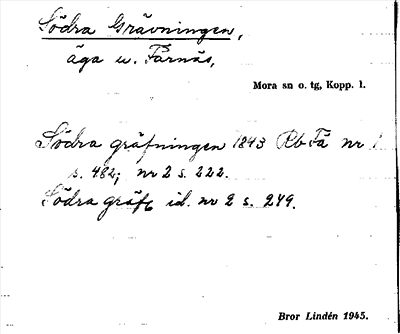 Södra Grävningen,
äga u. Färnäs,
Mora sn o. tg, Kopp. l.
Södra gräfningen 1843 Rb Fä nr 1
s. 482; nr 2 s. 222.
Södra gräfn id. nr 2 s. 249.
Bror Lindén 1945.